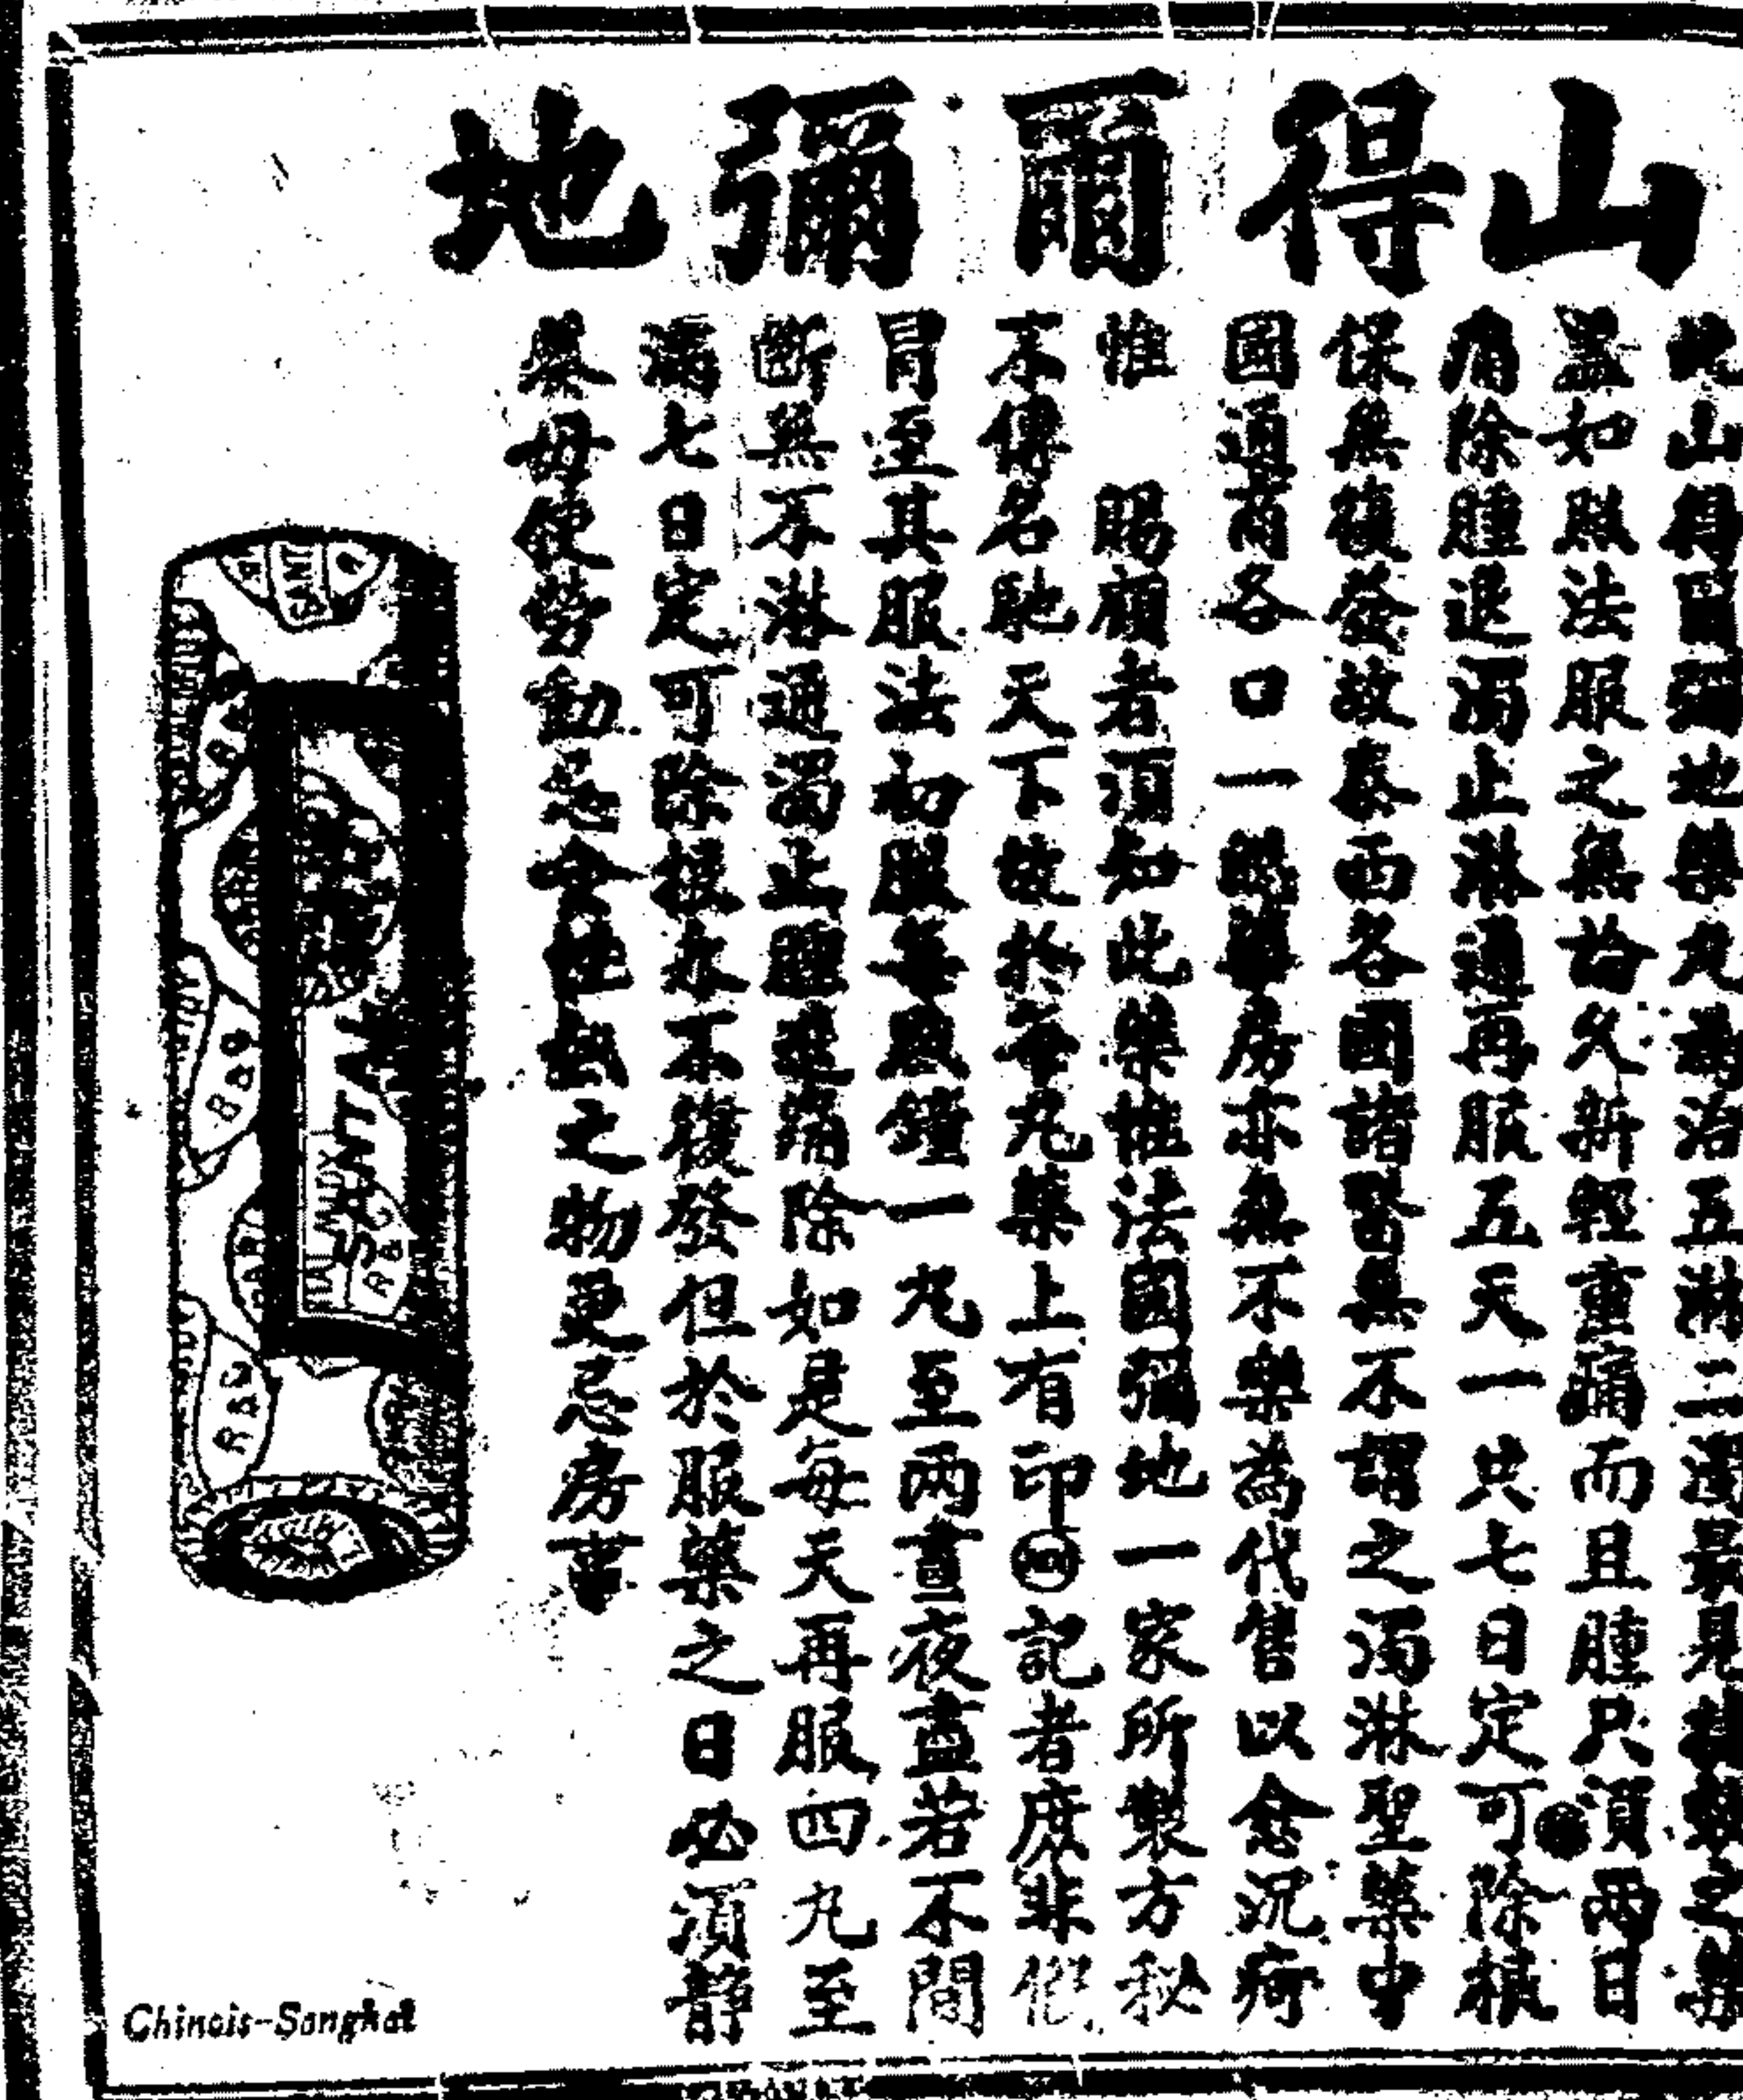 山得爾彌地
此山得爾彌地藥丸講治五淋二濁最見其之藥
蓋如照法服之無論久新輕重痛而且腫只須兩日
痛除腫退濁止淋通再服五天一共七日定可除根
保無復發故泰西各國諸醫無不謂之濁淋聖藥中
國通商各口一時藥房亦無不樂為代售以愈沉疴
惟 賜顧者須知此藥惟法國彌地一家所製方秘
不傳名馳天下故於每丸藥上有印記者庶非假
冒至其服法初服每點鐘一丸至兩晝夜盡若不間
斷無不淋通濁止腫退痛除如是每天再服四丸至
滿七日定可除根永不復發但於服藥之日必須靜
養毋使勞動忌食之物更忌房事
SANTAL
MIDY
Chinois-Sanghaï